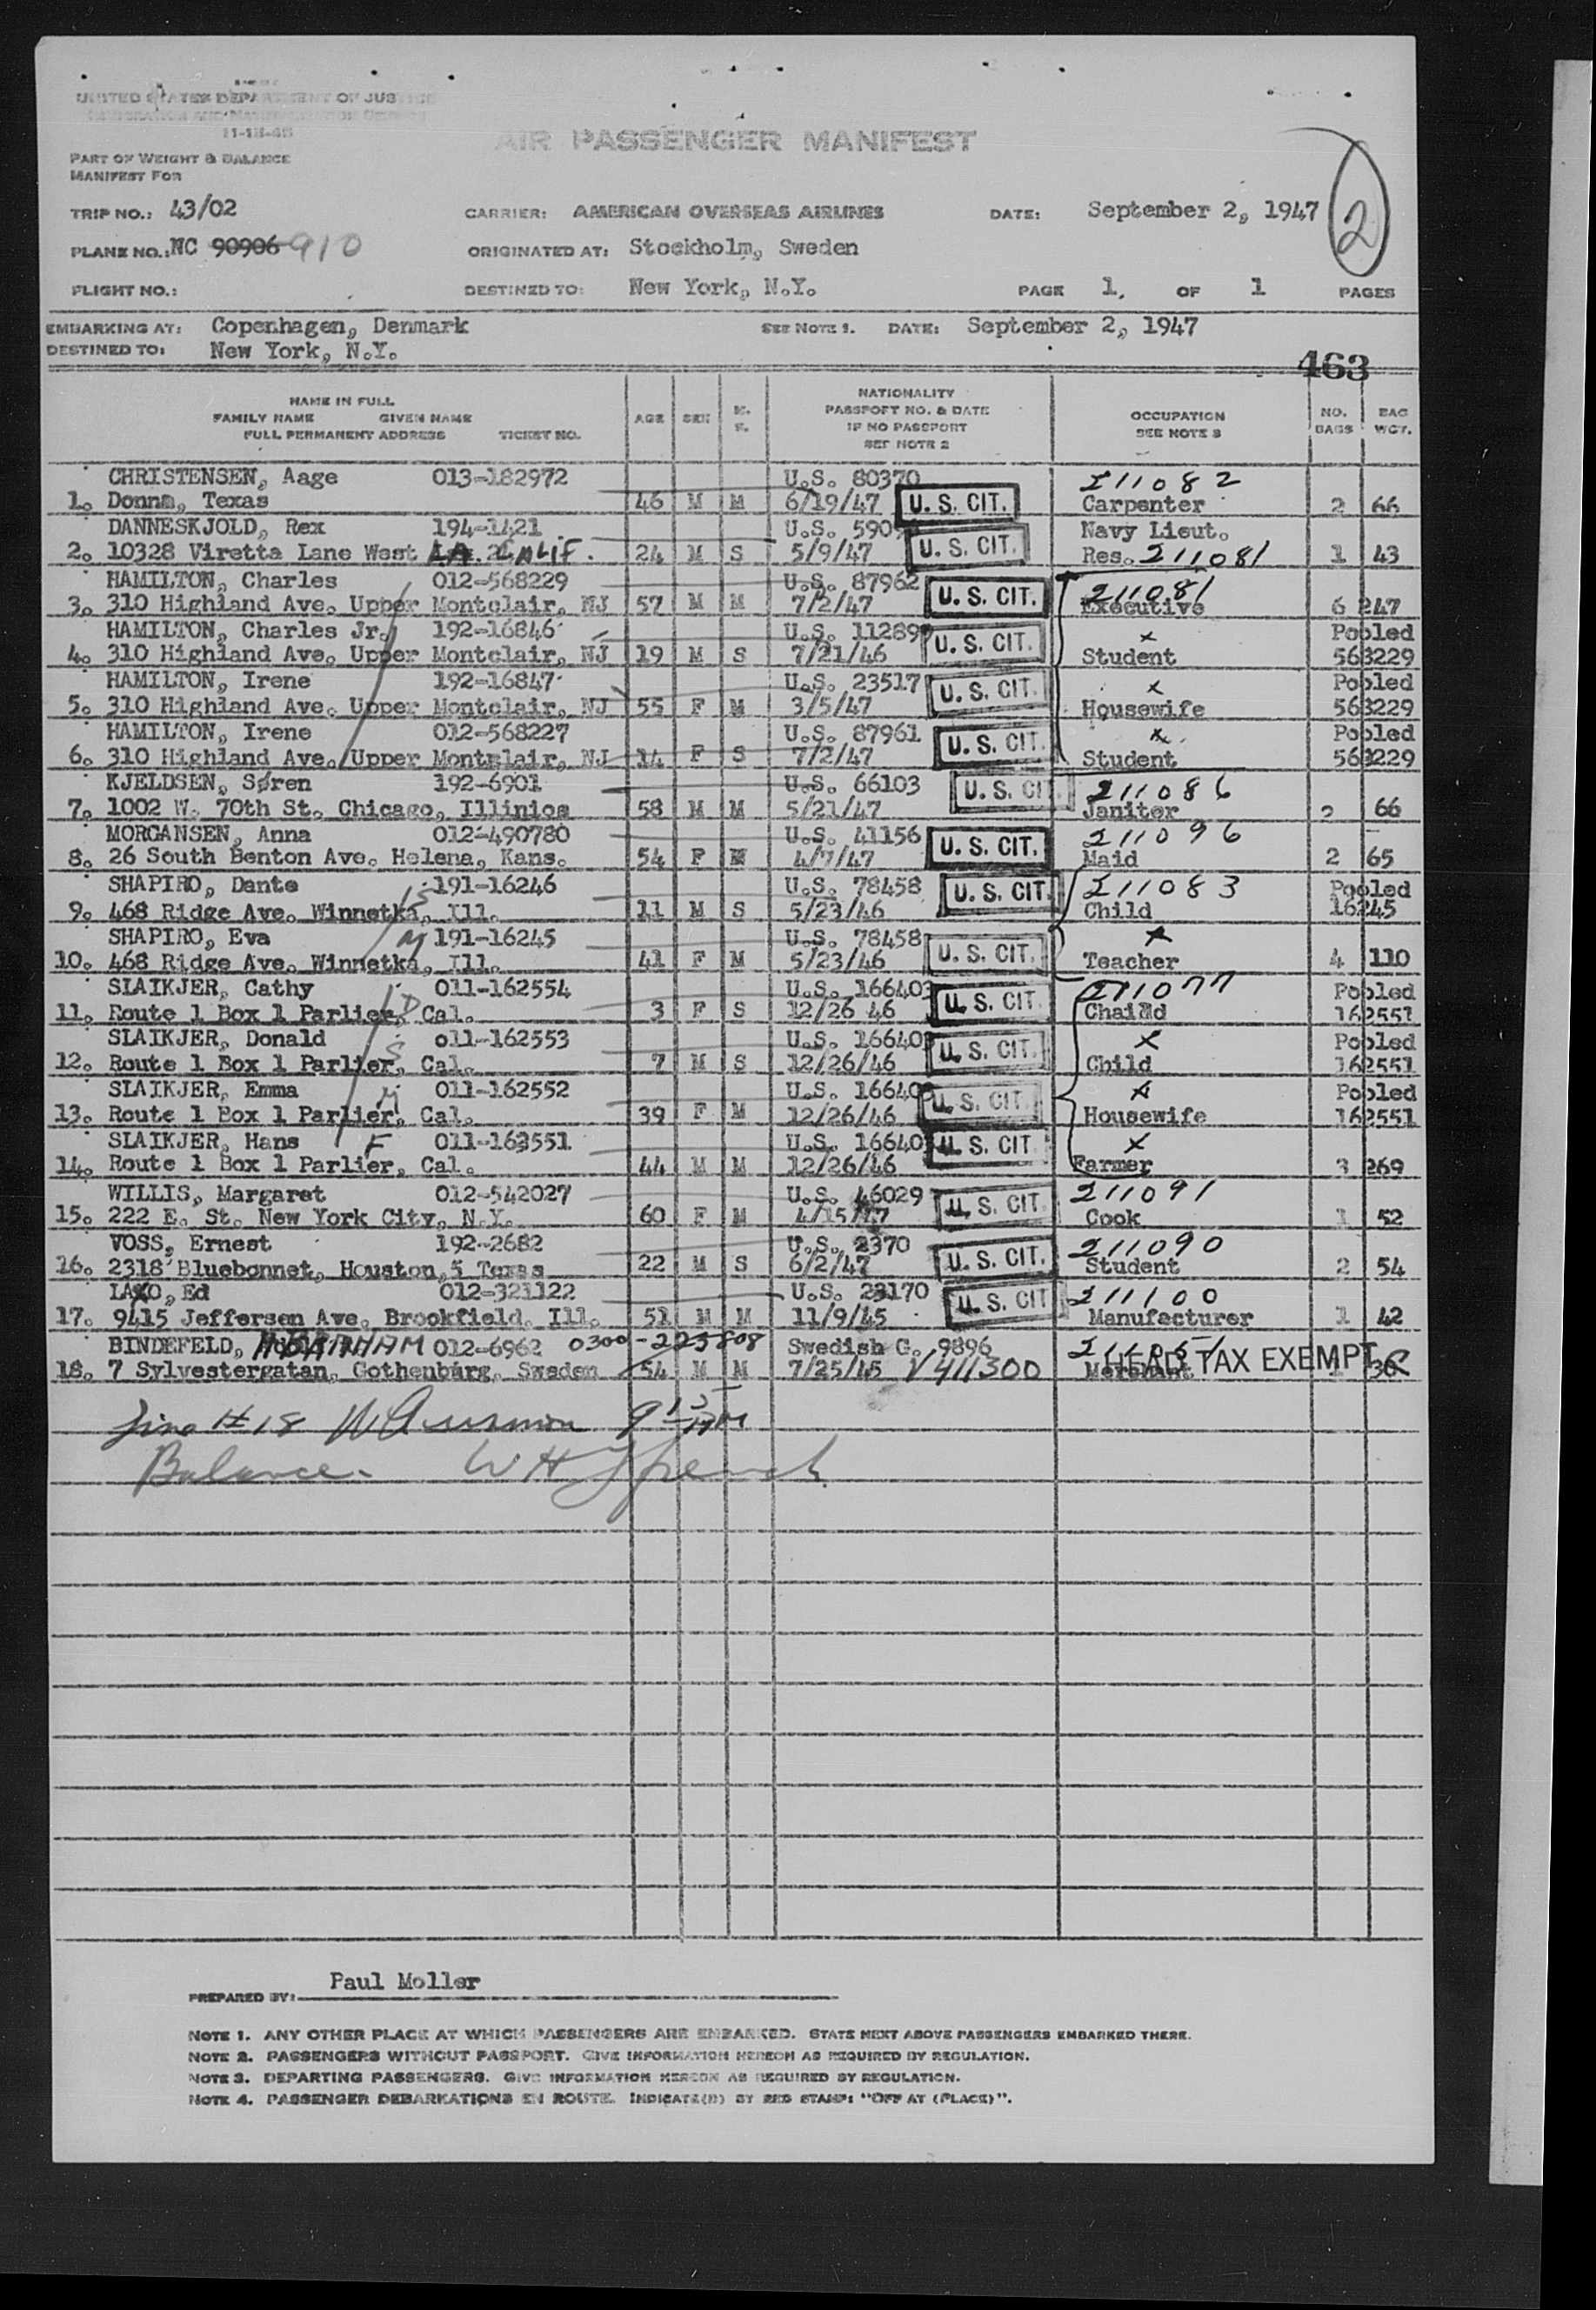 UNITED STATES DEPARTMENT OF JUSTICE
IMMIGRATION AND NATURALIZATION SERVICE
11-18-46
AIR PASSENGER MANIFEST
PART OF WEIGHT & BALANCE
MANIFEST FOR
TRIP NO.: 43/02 CARRIER: AMERICAN OVERSEAS AIRLINES DATE: September 2, 1947 2
PLANE NO.: NC 90906 910 ORIGINATED AT: Stockholm, Sweden
FLIGHT NO.: DESTINED TO: New York, N.Y. PAGE 1. OF 1 PAGES
EMBARKING AT: Copenhagen, Denmark SEE NOTE 1. DATE: September 2, 1947
DESTINED TO: New York, N.Y.
463
NAME IN FULL
FAMILY NAME GIVEN NAME
FULL PERMANENT ADDRESS TICKET NO. AGE SEX M. S. NATIONALITY PASSPORT NO. & DATE IF NO PASSPORT SEE NOTE 2 OCCUPATION SEE NOTE 3 NO. BAGS BAG WGT.
CHRISTENSEN, Aage 013-182972 U.S. 80370 211082
1. Donna, Texas 46 M M 6/19/47 U. S. CIT. Carpenter 2 66
DANNESKJOLD, Rex 194-1421 U.S. 5909 Navy Lieut.
2. 10328 Viretta Lane West L.A. 24 CALIF. 24 M S 5/9/47 U. S. CIT. Res. 211081 1 43
HAMILTON, Charles 012-568229 U.S. 87962 211081
3. 310 Highland Ave. Upper Montclair, NJ 57 M M 7/2/47 U. S. CIT. Executive 6 247
HAMILTON, Charles Jr. 192-16846 U.S. 11289 x Pooled
4. 310 Highland Ave. Upper Montclair, NJ 19 M S 7/21/46 U. S. CIT. Student 568229
HAMILTON, Irene 192-16847 U.S. 23517 x Pooled
5. 310 Highland Ave. Upper Montclair, NJ 55 F M 3/5/47 U. S. CIT. Housewife 568229
HAMILTON, Irene 012-568227 U.S. 87961 x Pooled
6. 310 Highland Ave. Upper Montclair, NJ 14 F S 7/2/47 U. S. CIT. Student 568229
KJELDSEN, Søren 192-6901 U.S. 66103 211086
7. 1002 W. 70th St. Chicago, Illinios 58 M M 5/21/47 U. S. CIT. Janiter 2 66
MORGANSEN, Anna 012-490780 U.S. 41156 211096
8. 26 South Benton Ave. Helena, Kans. 54 F M 4/7/47 U. S. CIT. Maid 2 65
SHAPIRO, Dante S 191-16246 U.S. 78458 211083 Pooled
9. 468 Ridge Ave. Winnetka, Ill. 11 M S 5/23/46 U. S. CIT. Child 16245
SHAPIRO, Eva M 191-16245 U.S. 78458 x
10. 468 Ridge Ave. Winnetka, Ill. 41 F M 5/23/46 U. S. CIT. Teacher 4 110
SLAIKJER, Cathy 011-162554 U.S. 166403 211077 Pooled
11. Route 1 Box 1 Parlier, Cal. D 3 F S 12/26 46 U. S. CIT. Chaild 162551
SLAIKJER, Donald o11-162553 U.S. 16640 x Pooled
12. Route 1 Box 1 Parlier, Cal. S 7 M S 12/26/46 U. S. CIT. Child 162551
SLAIKJER, Emma M 011-162552 U.S. 16640 x Pooled
13. Route 1 Box 1 Parlier, Cal. 39 F M 12/26/46 U. S. CIT. Housewife 162551
SLAIKJER, Hans F 011-162551 U.S. 16640 x
14. Route 1 Box 1 Parlier, Cal. 44 M M 12/26/46 U. S. CIT. Farmer 3 269
WILLIS, Margaret 012-542027 U.S. 46029 211091
15. 222 E. St. New York City, N.Y. 60 F M 4/15/47 U. S. CIT. Cook 1 52
VOSS, Ernest 192-2682 U.S. 2370 211090
16. 2318 Bluebonnet, Houston,5 Texas 22 M S 6/2/47 U. S. CIT. Student 2 54
LAXO, Ed 012-321122 U.S. 23170 211100
17. 9415 Jefferson Ave. Brookfield, Ill. 51 M M 11/9/45 U. S. CIT Manufacturer 1 42
BINDEFELD, ABRAHAM 012-6962 0300-225808 Swedish G. 9896
18. 7 Sylvestergatan, Gothenburg, Sweden 54 M M 7/25/45 V411300 Merchant HEAD TAX EXEMPT 1 30
Line # 18 9 15 PM
Balance. W H French
PREPARED BY: Paul Moller
NOTE 1. ANY OTHER PLACE AT WHICH PASSENGERS ARE EMBARKED. STATE NEXT ABOVE PASSENGERS EMBARKED THERE.
NOTE 2. PASSENGERS WITHOUT PASSPORT. GIVE INFORMATION HEREON AS REQUIRED BY REGULATION.
NOTE 3. DEPARTING PASSENGERS. GIVE INFORMATION HEREON AS REQUIRED BY REGULATION.
NOTE 4. PASSENGER DEBARKATIONS EN ROUTE. INDICATE(D) BY RED STAMP: "OFF AT (PLACE)".